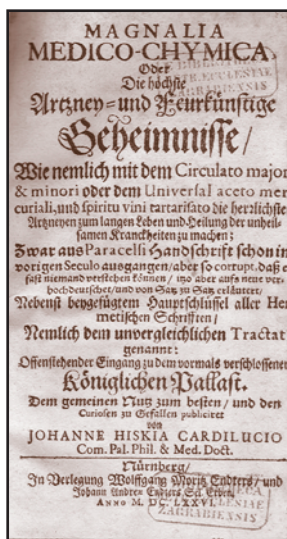 MAGNALIA
MEDICO-CHYMICA,
Oder
Die höchste
Artzney- und Feurkünstige
Geheimnisse/
Wie nemlich mit dem Circulato majori
& minori oder dem Universal aceto mer
curiali, und spiritu vini tartarisato die herzlichste
Artzneyen zum langen Leben und Heilung der unheil-
samen Kranckheiten zu machen;
Zwar aus Paracelsi Handschrift schon im
vorigen Seculo ausgangen/ aber so corrupt, daß es
fast niemand verstehen können/ itzo aber aufs neue ver-
hochdeutschet/ und von Satz zu Satz erläutert/
Nebenst beygefügtem Hauptschlüssel aller Her
metischen Schriften/
Nemlich dem unvergleichlichen Tractat
genannt:
Offenstehender Eingang zu dem vormals verschlossenen
Königlichen Pallast.
Dem gemeinen Nutz zum besten/ und den
Curiosen zu Gefallen publiciret
von
JOHANNE HISKIA CARDILUCIO
Com. Pal. Phil. & Med. Doct.
Nürnberg/
In Verlegung Wolffgang Moritz Endters/ und
Johann Andreæ Endters Sel. Erben.
ANNO M. DC. LXXVI.
ZAGRABIENSIS